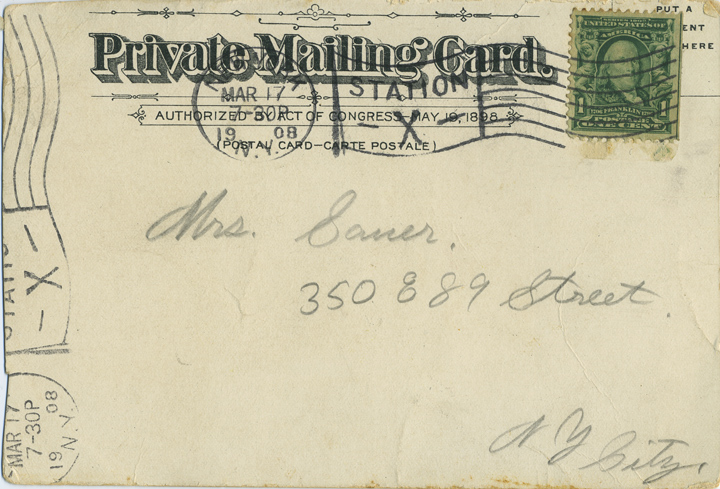 PUT A
ENT
HERE
Private Mailing Card.
AUTHORIZED BY ACT OF CONGRESS, MAY 19, 1898.
(POSTAL CARD–CARTE POSTALE)
MAR 17
7-30P
19 08
N.Y.
STATION
– X –
UNITED STATES OF
AMERICA
1 FRANKLIN 1
POSTAGE
ONE CENT
Mrs. Sauer.
350 E 89 Street.
N Y City.
– X –
MAR 17
7-30P
19 08
N.Y.